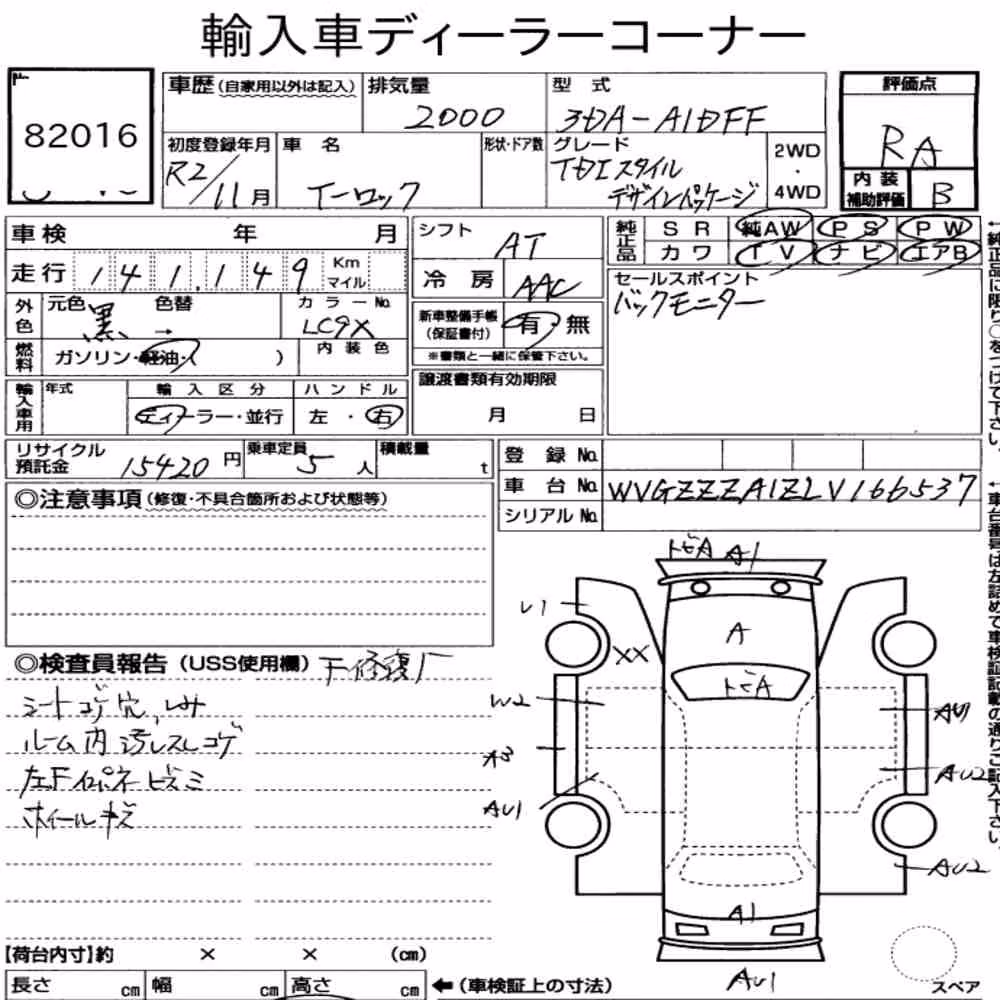 輸入車ディーラーコーナー
82016
車歴(自家用以外は記入) 排気量 2000 型式 3DA-A1DFF 評価点 RA
初度登録年月 R2/11月 車名 T-ロック 形状・ドア数 グレード TDI スタイル デザインパッケージ 2WD・4WD 内装補助評価 B
車検 年 月 シフト AT 純正品 SR 純AW PS PW
走行 141,149 Km マイル 冷房 AAC カワ TV ナビ エアB
外色 元色 黒 色替 → カラーNo LC9X 新車整備手帳(保証書付) 有・無 セールスポイント バックモニター
燃料 ガソリン・軽油・( ) 内装色 ※書類と一緒に保管下さい。
輸入車用 年式 輸入区分 ディーラー・並行 ハンドル 左・右 譲渡書類有効期限 月 日
リサイクル預託金 15420円 乗車定員 5人 積載量 t 登録No.
車台No. WVGZZZA1ZLV166537
シリアルNo.
◎注意事項(修復・不具合箇所および状態等)
◎検査員報告(USS使用欄)
シートコゲ穴,
ルーム内汚レスレコゲ
左F
ホイールキズ
トビA A1
U1
A
XX
トビA
W2
AU1
A3
AU2
AU1
AU2
A1
AU1
【荷台内寸】約 × × (cm)
長さ cm 幅 cm 高さ cm ←(車検証上の寸法)
スペア
←純正品に限り○をつけて下さい。
←車台番号は左詰めで車検証記載の通りご記入下さい。